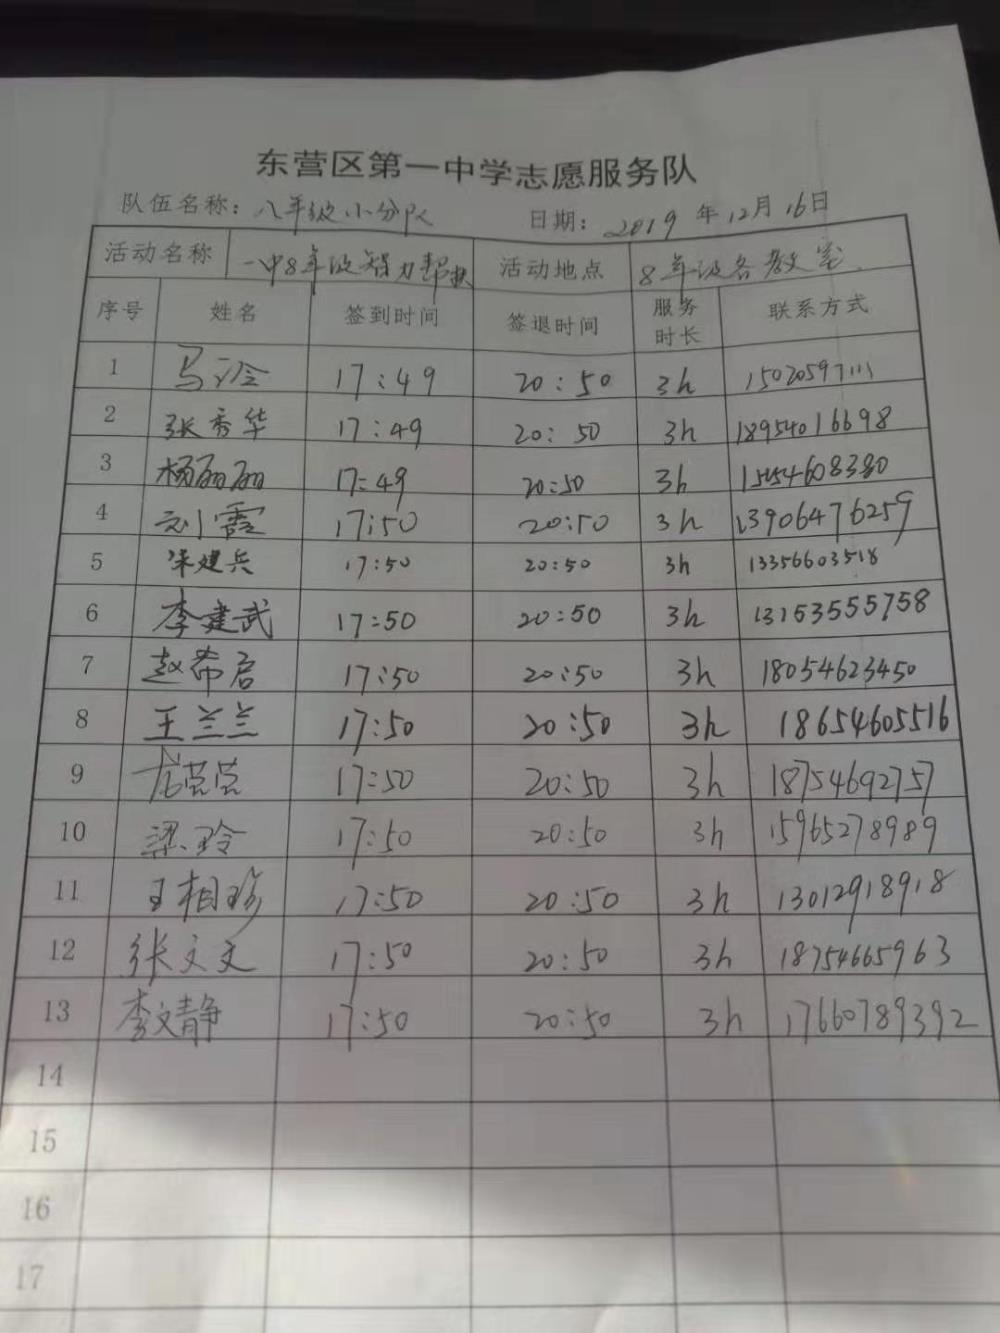 东营区第一中学志愿服务队
队伍名称：八年级小分队 日期：2019年12月16日
活动名称 一中8年级智力帮扶 活动地点 8年级各教室
序号 姓名 签到时间 签退时间 服务时长 联系方式
1 马泠 17:49 20:50 3h 15020597111
2 张秀华 17:49 20:50 3h 18954016698
3 杨丽丽 17:49 20:50 3h 15154608380
4 刘霞 17:50 20:50 3h 13906476259
5 宋建兵 17:50 20:50 3h 13356603518
6 李建武 17:50 20:50 3h 13153555758
7 赵希启 17:50 20:50 3h 18054623450
8 王兰兰 17:50 20:50 3h 18654605516
9 尤莹莹 17:50 20:50 3h 18754692757
10 梁玲 17:50 20:50 3h 15965278989
11 王相珍 17:50 20:50 3h 13012918918
12 张文文 17:50 20:50 3h 18754665963
13 李文静 17:50 20:50 3h 17660789392
14
15
16
17